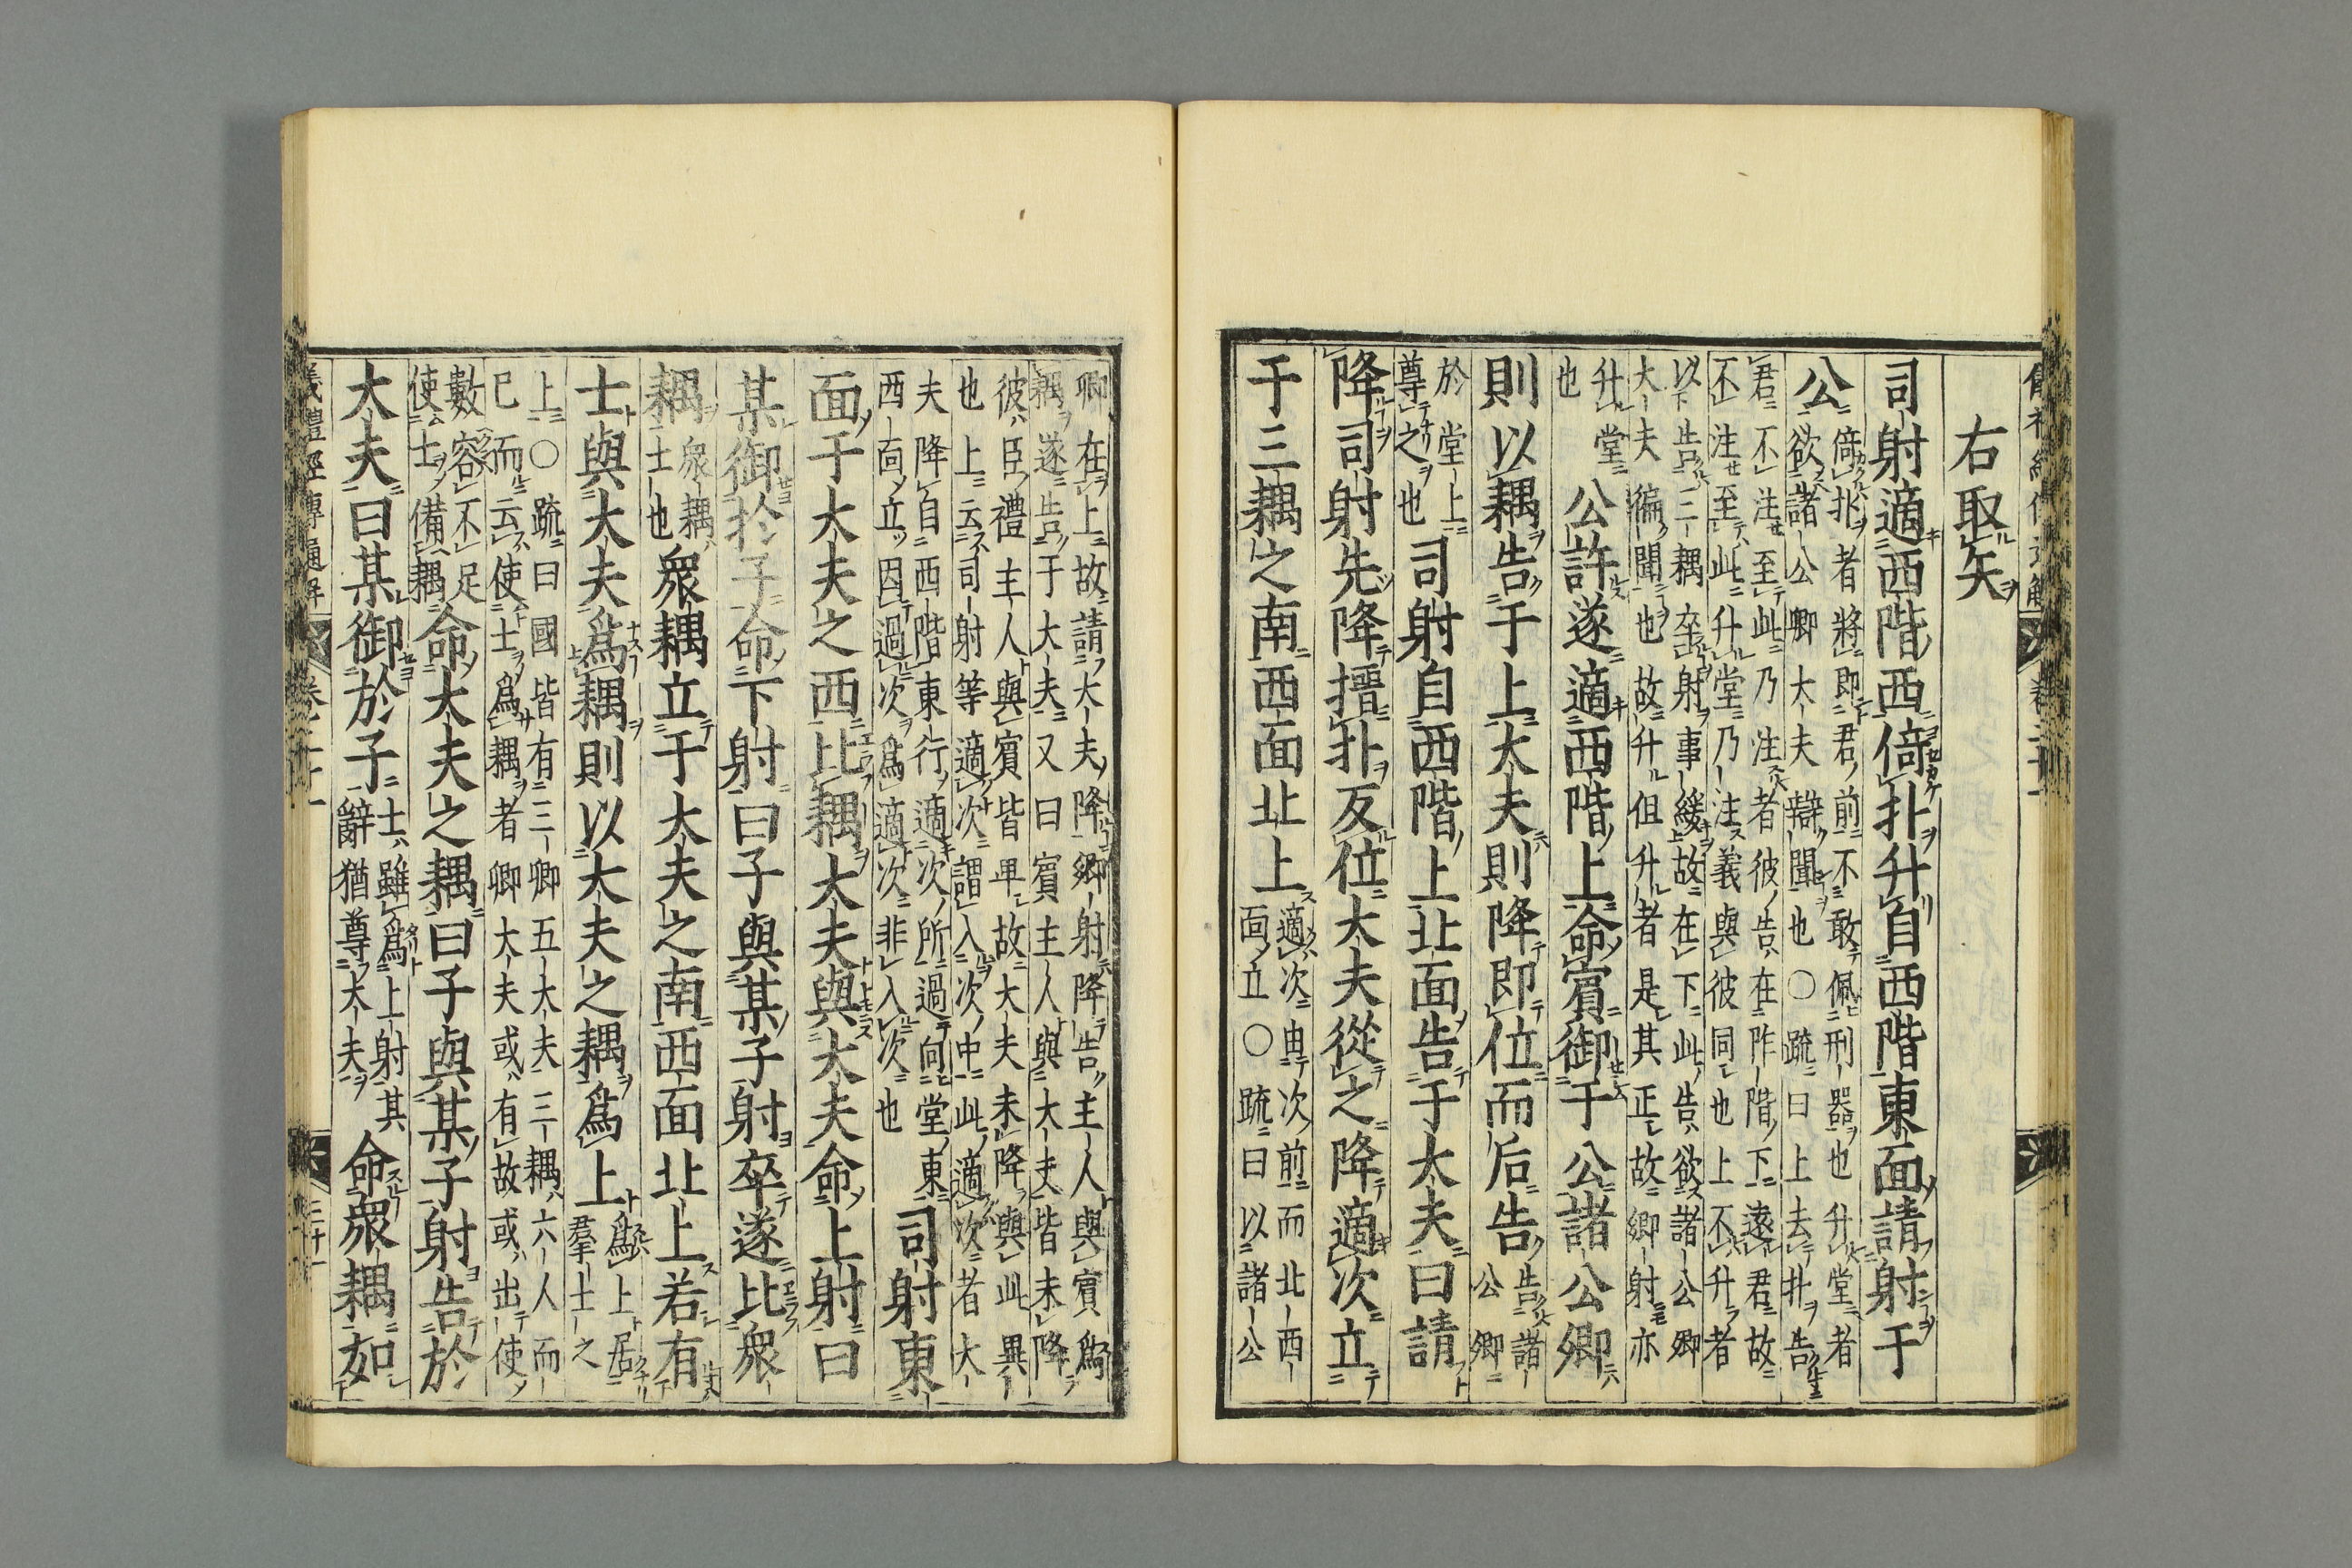 右取矢
司射適西階西倚扑升自西階東面請射于
公
倚扑者將即君前不敢佩刑器也升堂者
欲諸公卿大夫辯聞也〇疏曰上去扑告
君不注至此乃注者彼告在阼階下遠君故
不注至此升堂乃注義與彼同也上不升者
以告三耦卒射事緩故在下此告欲諸公卿
大夫徧聞也故升但升者是其正故卿射亦
升堂
也
公許遂適西階上命賓御于公諸公卿
則以耦告于上大夫則降即位而后告
告諸
公卿
於堂上
尊之也
司射自西階上北面告于大夫曰請
降司射先降搢扑反位大夫從之降適次立
于三耦之南西面北上
適次由次前而北西
面立〇疏曰以諸公
卿在上故請大夫降卿射降告主人與賓爲
耦遂告于大夫又曰賓主人與大夫皆未降
彼臣禮主人與賓皆卑故大夫未降與此異
也上云司射等適次謂入次中此適次者大
夫降自西階東行適次所過向堂東
西面立因過次爲適次非入次也
司射東
面于大夫之西比耦大夫與大夫命上射曰
某御於子命下射曰子與某子射卒遂比衆
耦
衆耦
士也
衆耦立于大夫之南西面北上若有
士與大夫爲耦則以大夫之耦爲上
爲上居
羣士之
上〇疏曰國皆有三卿五大夫三耦六人而
已而云使士爲耦者卿大夫或有故或出使
數容不足
使士備耦
命大夫之耦曰子與某子射告於
大夫曰某御於子
士雖爲上射其
辭猶尊大夫
命衆耦如
儀禮經傳通解 卷二十一